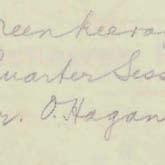 reenkeeva
Quarter Sess
r. O. Hagan